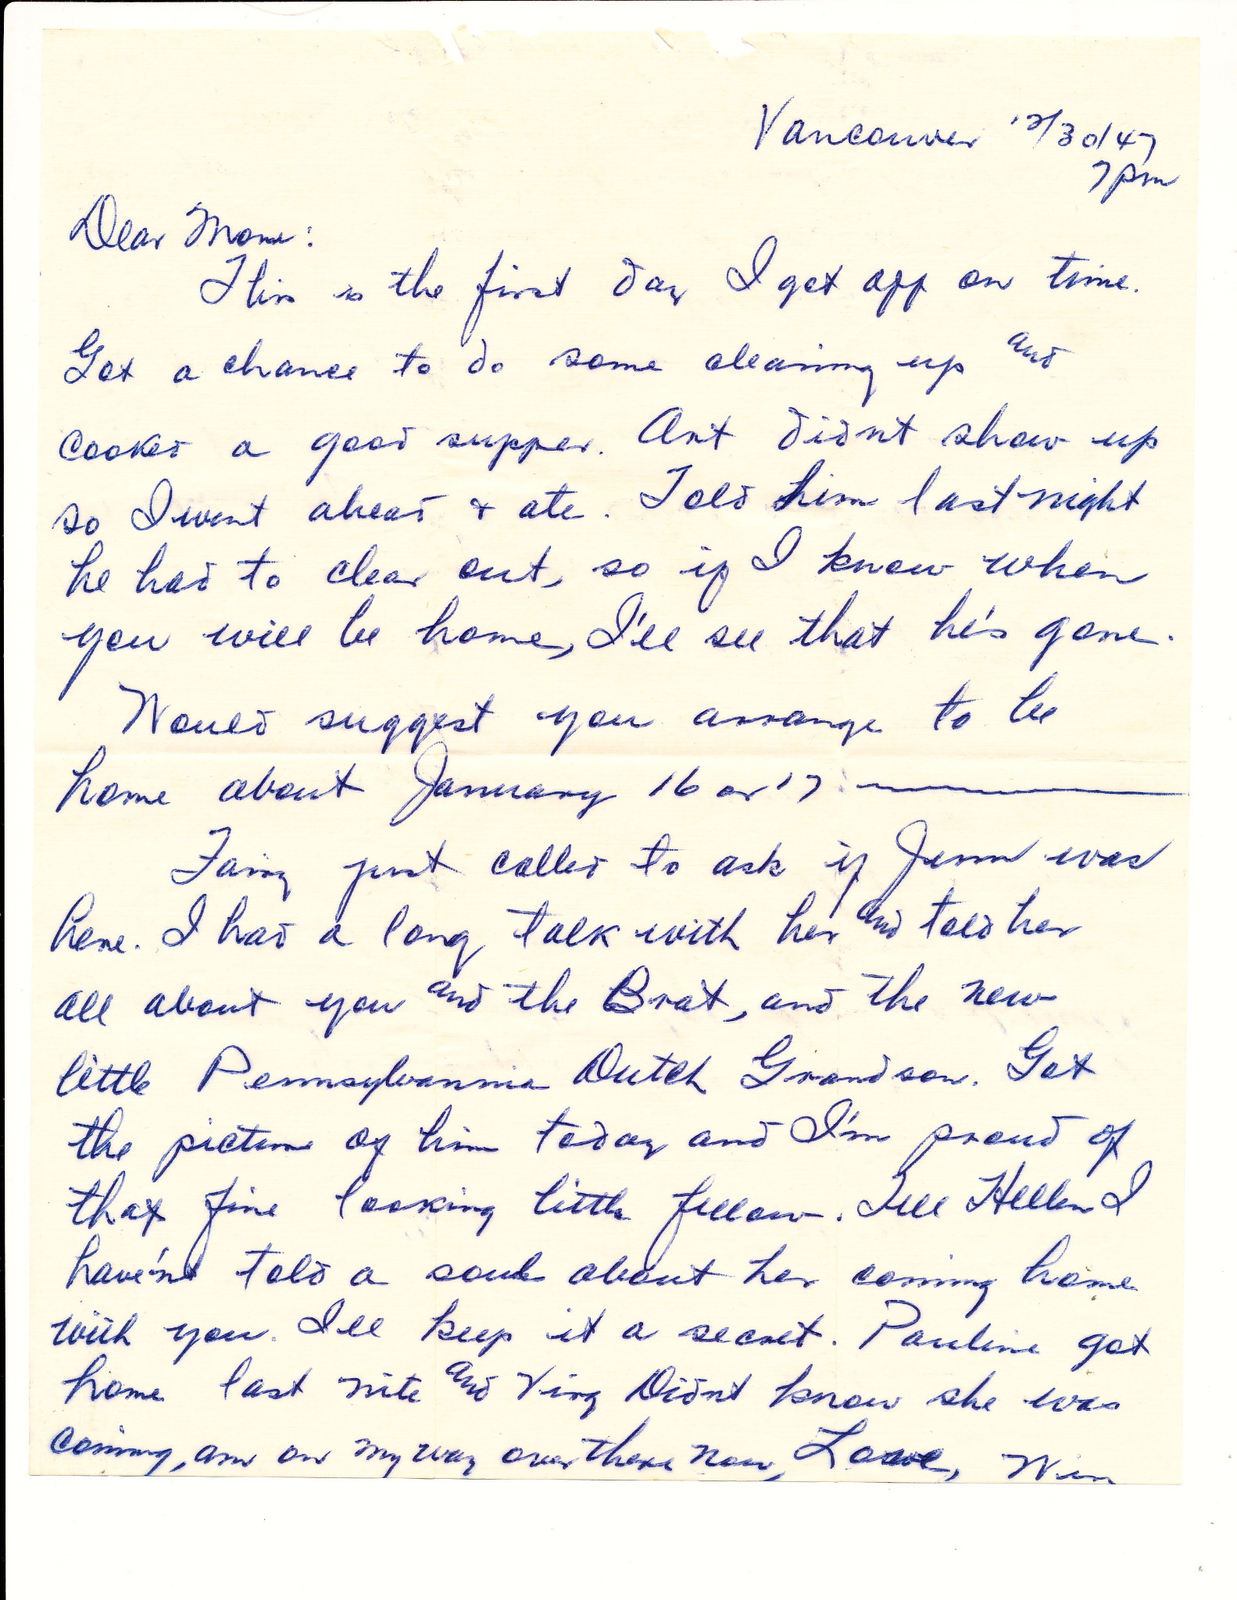 Vancouver 12/30/47
7pm
Dear Mom:
This is the first day I get off on time.
Got a chance to do some cleaning up and
cooked a good supper. Art didnt show up
so I went ahead & ate. Told him last night
he had to clear out, so if I know when
you will be home, I'll see that he's gone.
Would suggest you arrange to be
home about January 16 or 17.
just called to ask if was
here. I had a long talk with her and told her
all about you and the Brat, and the new
little Pennsylvannia Dutch Grandson. Got
the picture of him today and I'm proud of
that fine looking little fellow. Tell Hellen I
have'nt told a soul about her coming home
with you. I'll keep it a secret. Pauline got
home last nite and Virg Didnt know she was
coming, am on my way over there now, Love, Win